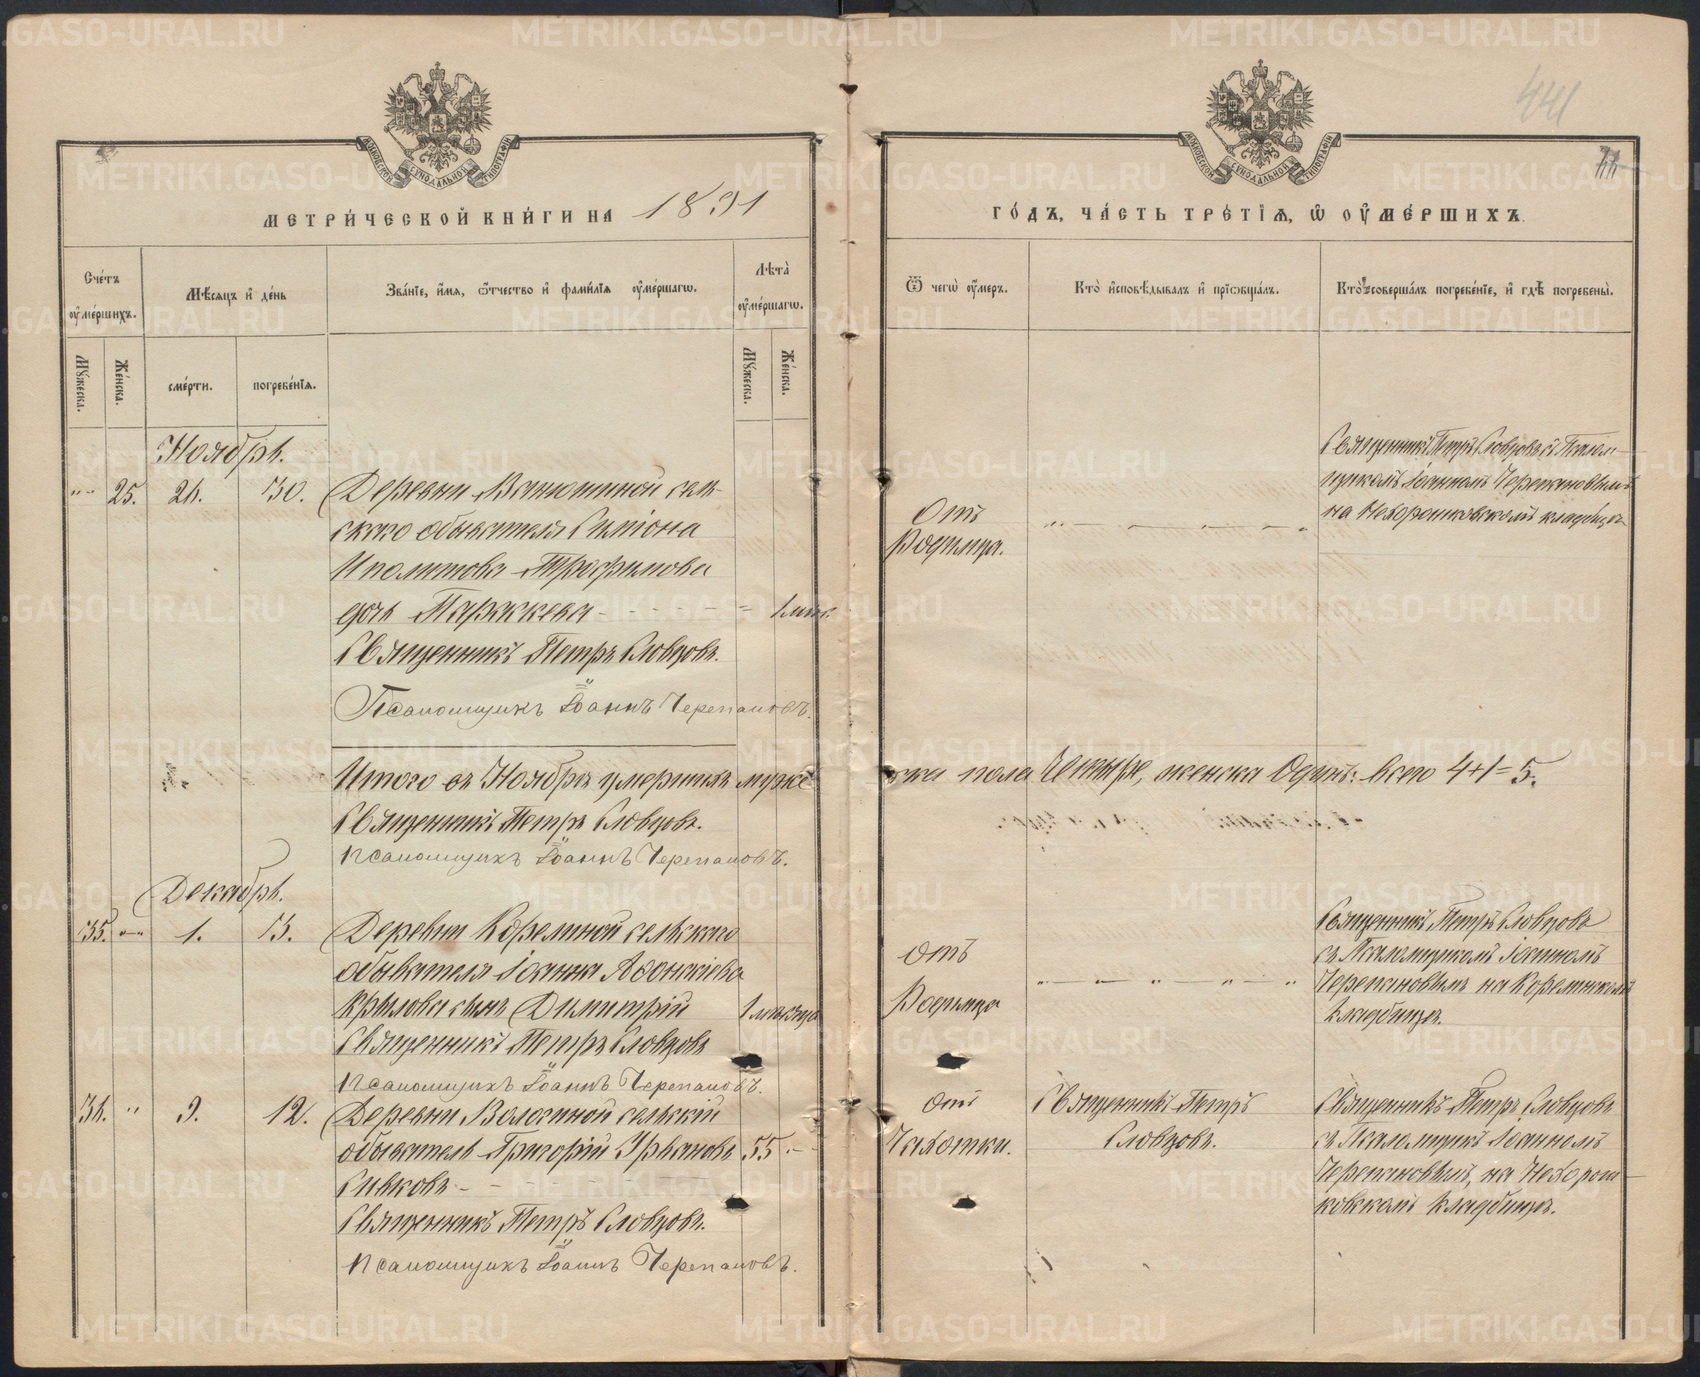 441
МЕТРИ́ЧЕСКОЙ КНИ́ГИ НА 1891
ГО́ДЪ, ЧА́СТЬ ТРЕ́ТІЯ, Ѡ ОУМЕ́РШИХЪ
Сче́тъ оумершихъ.
Мꙋжеска.
Же́нска.
Мѣсяцъ и де́нь
сме́рти.
погребе́нія.
Зва́ніе, и́мя, ѻтчество и фами́лія оуме́ршагѡ.
Лѣта̀ оуме́ршагѡ.
Мꙋжеска.
Же́нска.
Ѿ чегѡ̀ оу́меръ.
Кто̀ исповѣдывалъ и пріѡбща́лъ.
Кто̀ соверша́лъ погребе́ніе, и гдѣ погребены̀.
Ноябрь.
25. 26. 30.
Деревни Ванюшиной сель-
скаго обывателя Симеона
Иполитова Трофимова
дочь Параскева
1 мѣс.
Священникъ Петръ Словцовъ.
Псаломщикъ Іоаннъ Черепановъ.
Отъ
Родимца.
Священникъ Петръ Словцовъ съ Псалом-
щикомъ Іоанномъ Черепановымъ
на кладбищѣ
Итого въ Ноябрѣ умершихъ мужеска пола Четыре, женска Одинъ: всего 4+1=5.
Священникъ Петръ Словцовъ.
Псаломщикъ Іоаннъ Черепановъ.
Декабрь.
35. 1. 3.
Деревни Корелиной сельскаго
обывателя Іоанна
Крылова сынъ Димитрій
1 мѣсяца
Священникъ Петръ Словцовъ
Псаломщикъ Іоаннъ Черепановъ.
отъ
Родимца
Священникъ Петръ Словцовъ
съ Псаломщикомъ Іоанномъ
Черепановымъ на Корелинскомъ
кладбищѣ.
36. 9. 12.
Деревни Волегиной сельскій
обыватель Григорій
55
Сивковъ
Священникъ Петръ Словцовъ.
Псаломщикъ Іоаннъ Черепановъ.
отъ
Чахотки.
Священникъ Петръ
Словцовъ.
Священникъ Петръ Словцовъ
съ Псаломщикомъ Іоанномъ
Черепановымъ, на
кладбищѣ.
METRIKI.GASO-URAL.RU